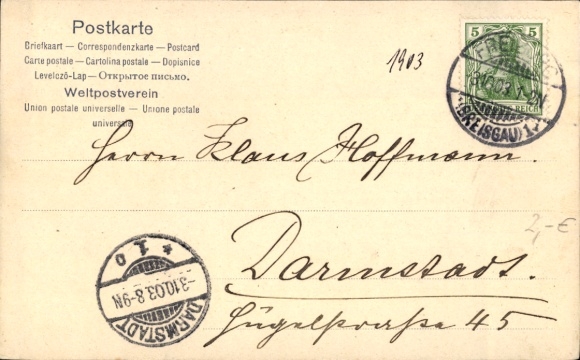 Postkarte
Briefkaart — Correspondenzkarte — Postcard
Carte postale — Cartolina postale — Dopisnice
Levelező-Lap — Открытое письмо.
Weltpostverein
Union postale universelle — Unione postale
universale
1903
5 5
REICH
FREIBURG
(BREISGAU) 1
Herrn Klaus Hoffmann.
2,-€
Darmstadt.
Hügelstraße 45
* 1 D
3.10.03. 8-9N
DARMSTADT